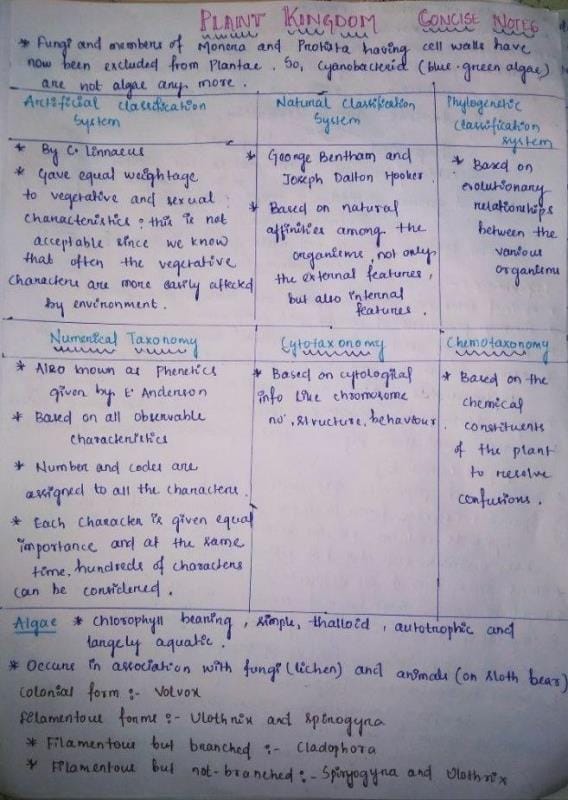 PLANT KINGDOM CONCISE NOTES
* Fungi and members of Monera and Protista having cell walls have
now been excluded from Plantae. So, Cyanobacteria (blue-green algae)
are not algae any more.
Artificial Classification
System
* By C. Linnaeus
* Gave equal weightage
to vegetative and sexual
characteristics; this is not
acceptable since we know
that often the vegetative
characters are more easily affected
by environment.
Natural Classification
System
* George Bentham and
Joseph Dalton Hooker.
* Based on natural
affinities among the
organisms, not only
the external features,
but also internal
features.
Phylogenetic
Classification
System
* Based on
evolutionary
relationships
between the
various
organisms
Numerical Taxonomy
* Also known as Phenetics
given by E. Anderson
* Based on all observable
characteristics
* Number and codes are
assigned to all the characters.
* Each character is given equal
importance and at the same
time, hundreds of characters
can be considered.
Cytotaxonomy
* Based on cytological
info like chromosome
no., structure, behaviour.
Chemotaxonomy
* Based on the
chemical
constituents
of the plant
to resolve
confusions.
Algae * Chlorophyll bearing, simple, thalloid, autotrophic and
largely aquatic.
* Occurs in association with fungi (lichen) and animals (on sloth bear)
Colonial form :- Volvox
Filamentous forms :- Ulothrix and Spirogyra
* Filamentous but branched :- Cladophora
* Filamentous but not-branched :- Spiryogyna and Ulothrix